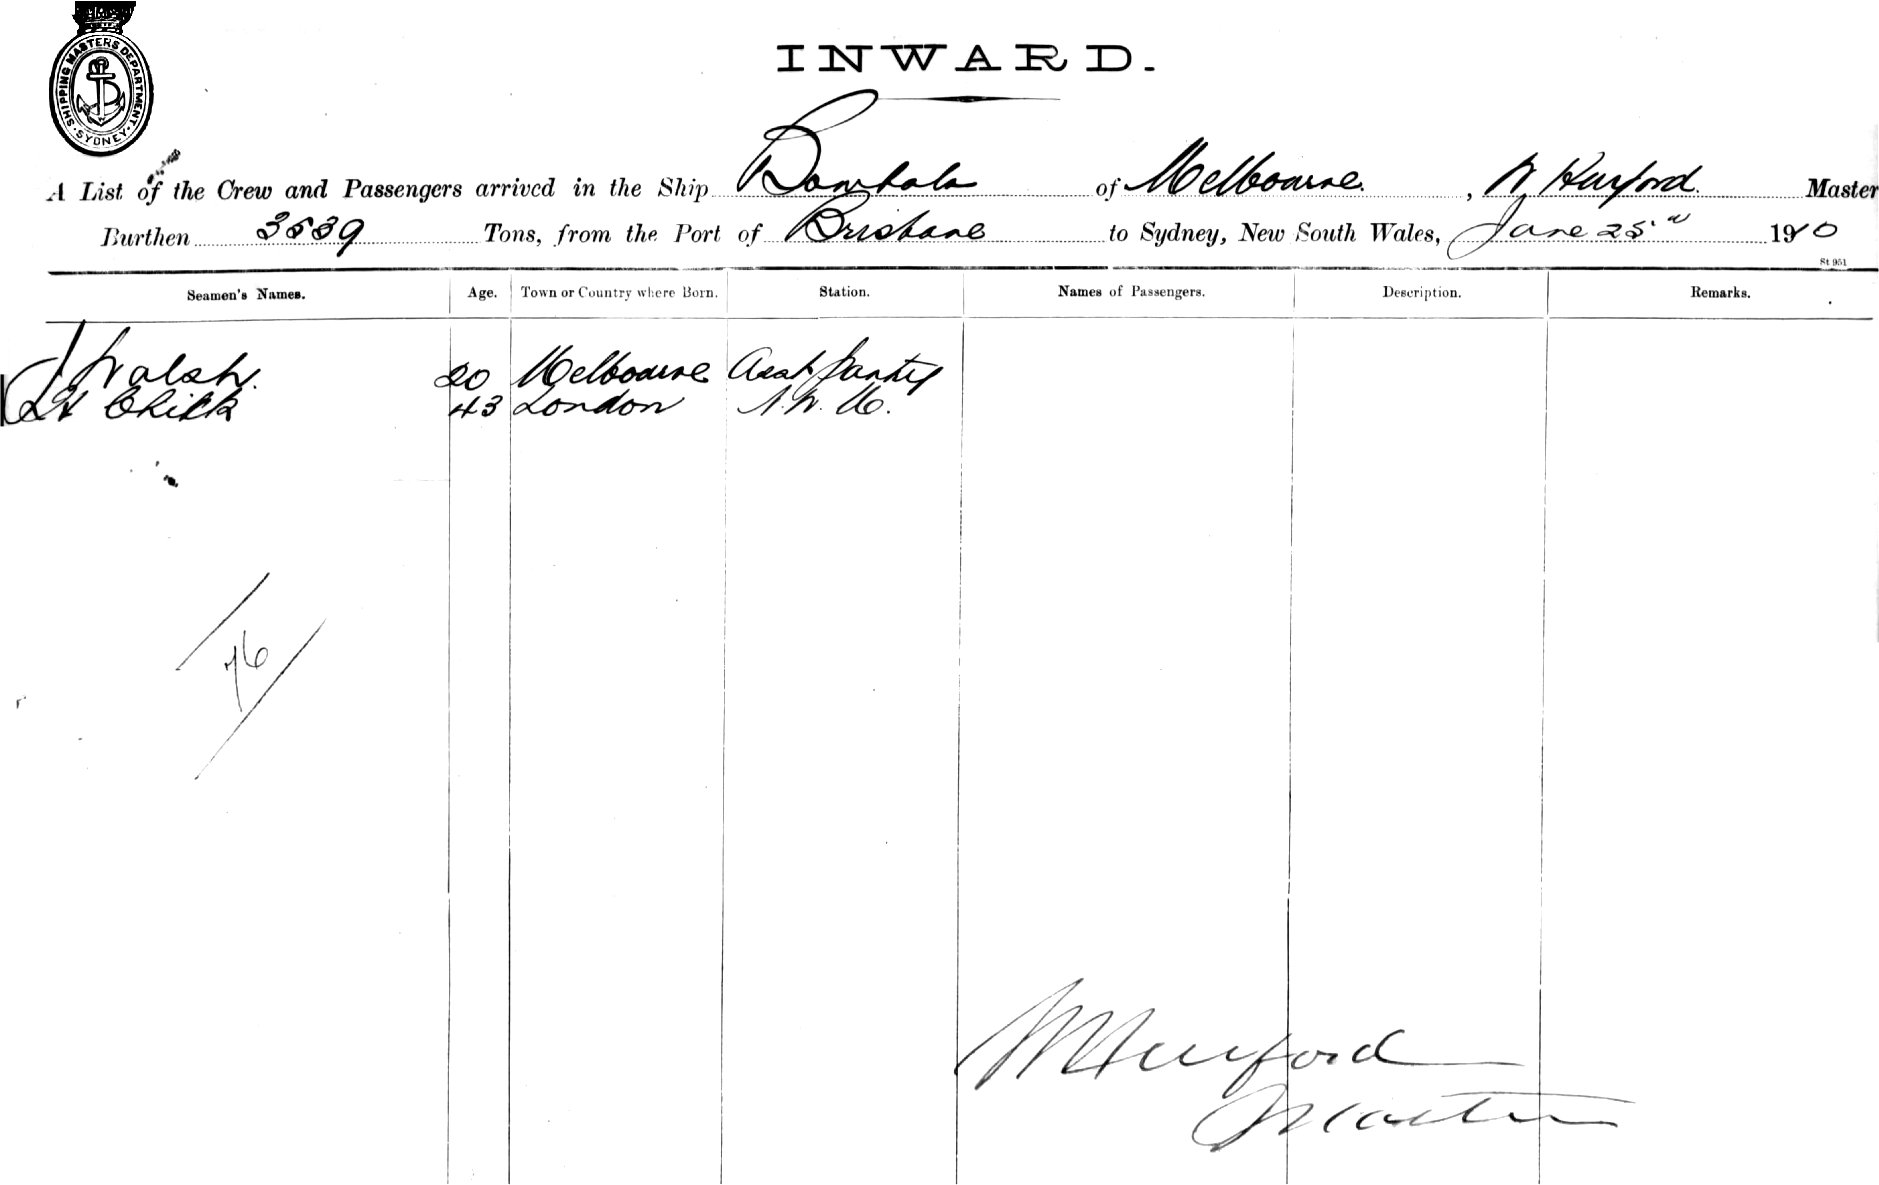 SHIPPING MASTERS DEPARTMENT
SYDNEY
INWARD.
A List of the Crew and Passengers arrived in the Ship Bombala of Melbourne, W Hurford. Master
Burthen 3539 Tons, from the Port of Brisbane to Sydney, New South Wales, June 25th 1910
St 951
Seamen's Names. Age. Town or Country where Born. Station. Names of Passengers. Description. Remarks.
J Walsh. 20 Melbourne Asst Pantry
43 London
76
W Hurford
Master